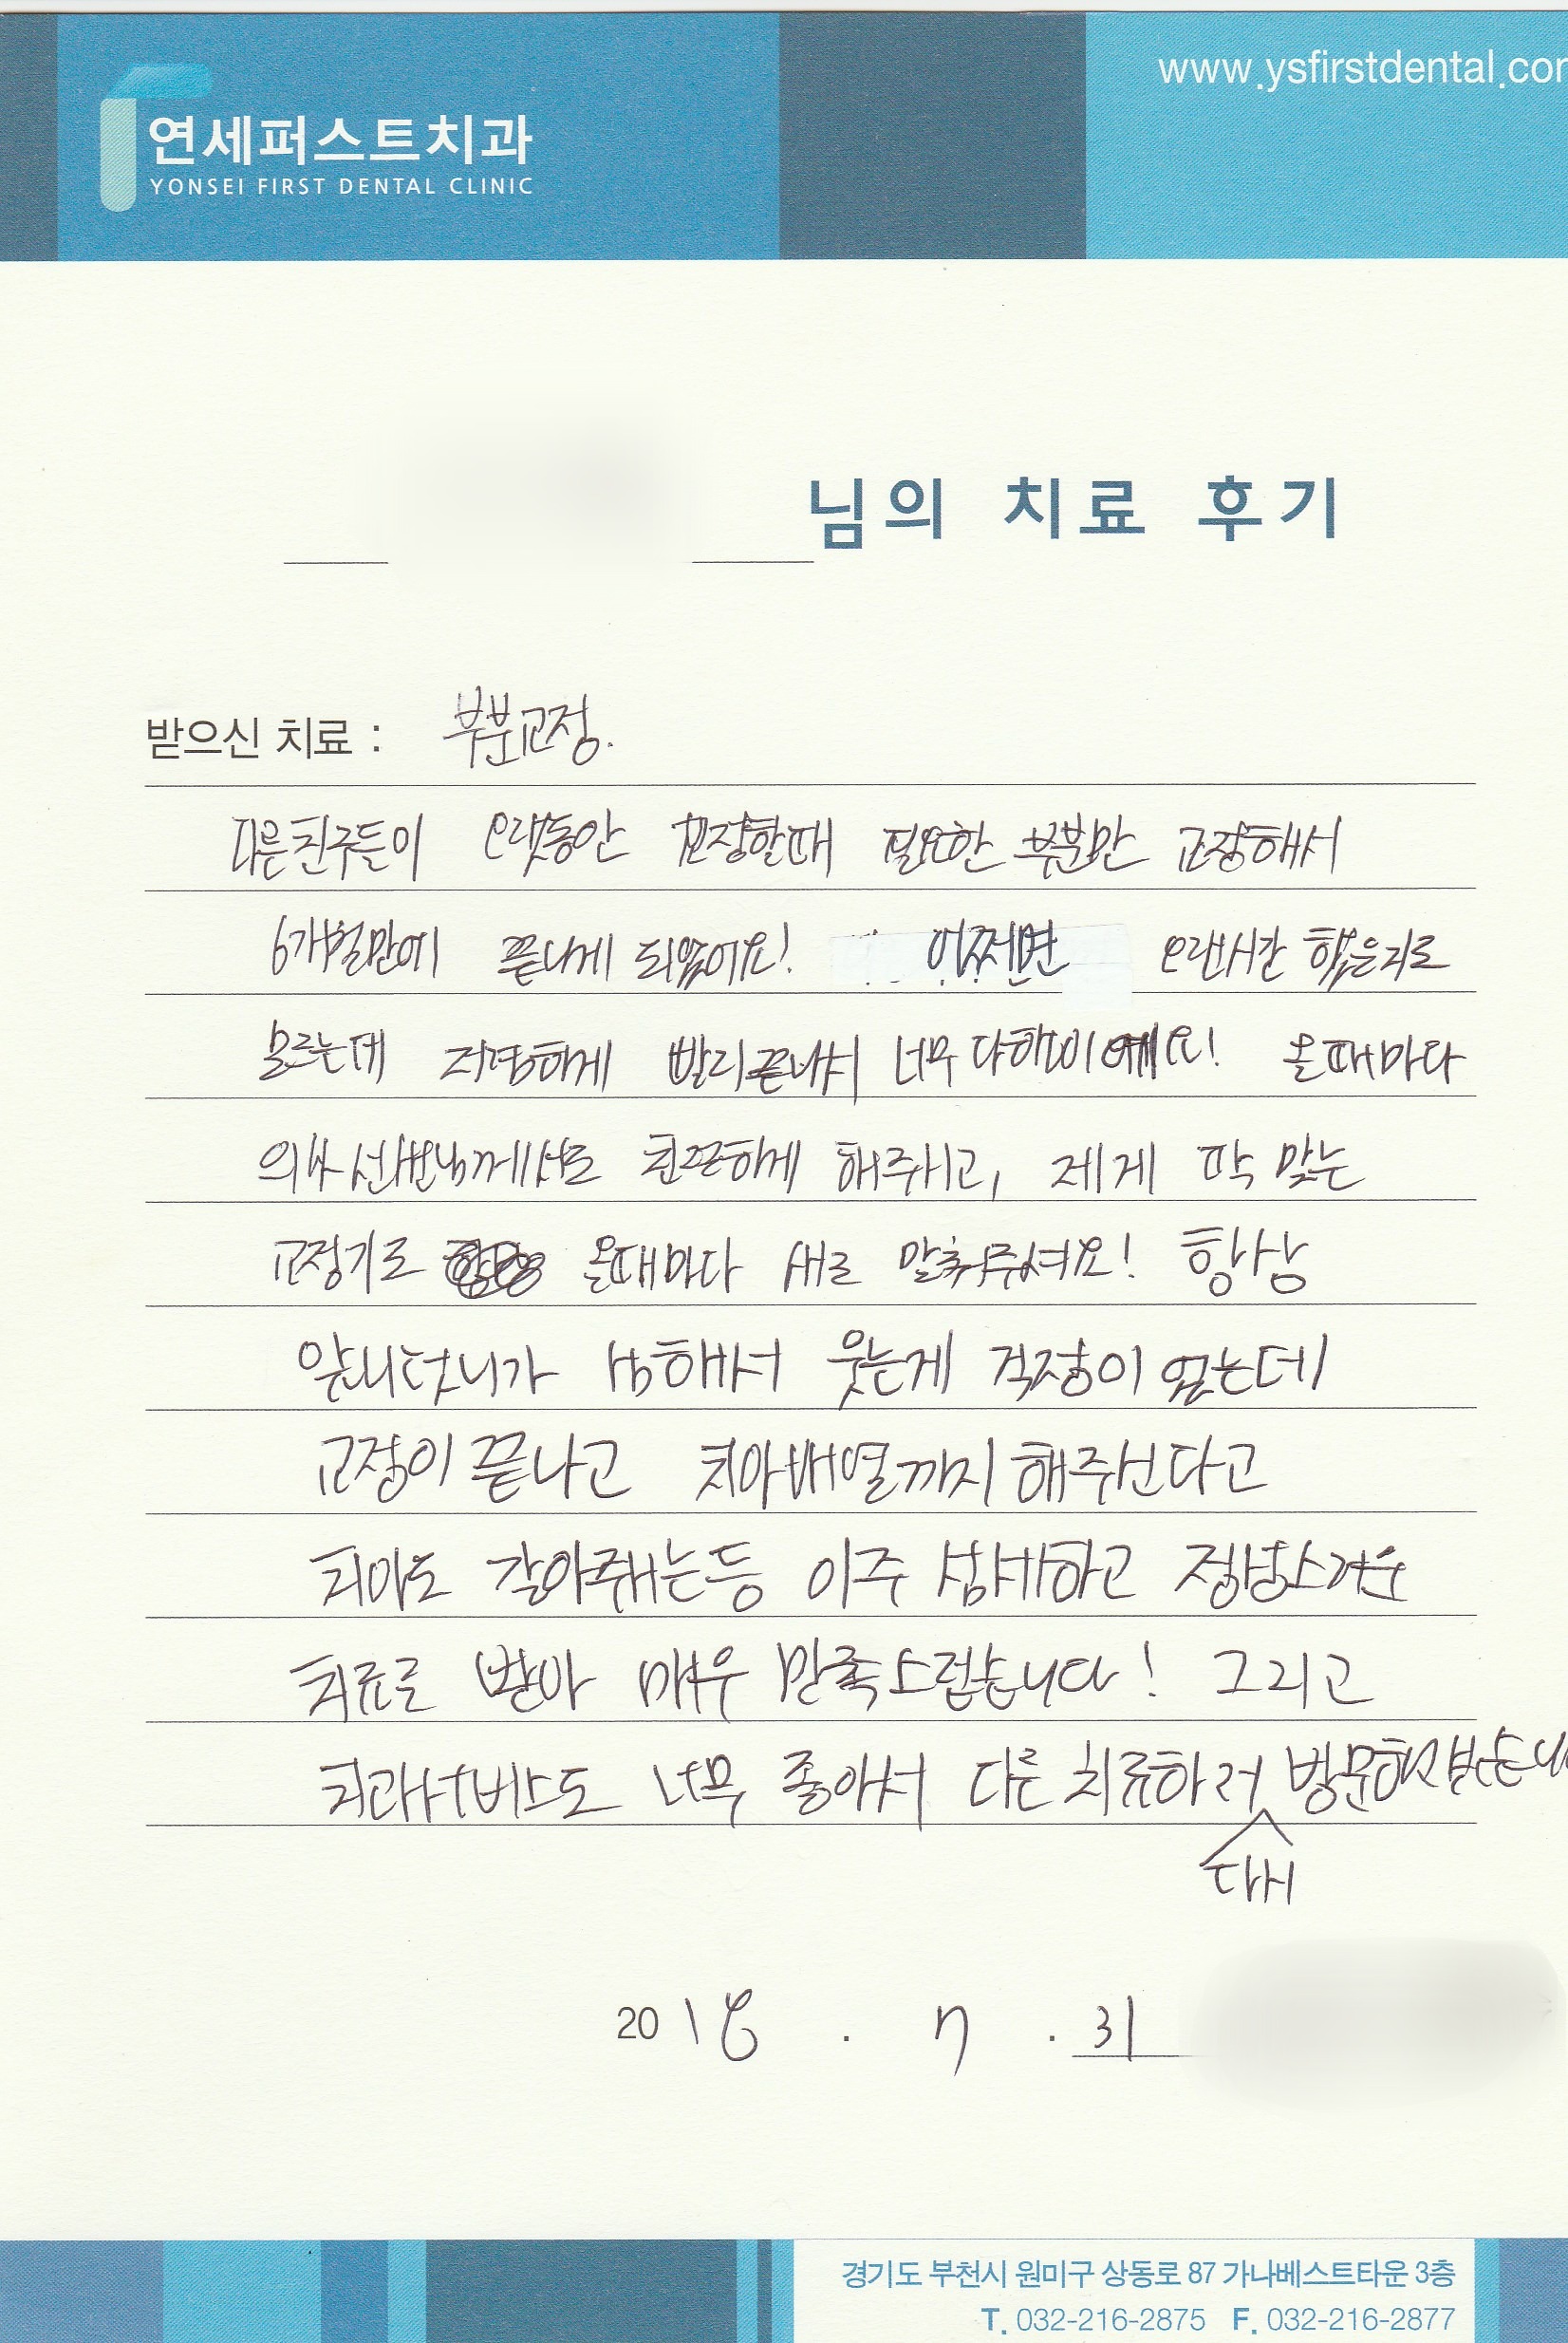 www.ysfirstdental.com
연세퍼스트치과
YONSEI FIRST DENTAL CLINIC
님의 치료 후기
받으신 치료 : 부분교정.
다른친구들이 오랫동안 교정할때 필요한 부분만 교정해서
6개월만에 끝나게 되었어요! 어쩌면 오랜시간 했을지도
모르는데 저렴하게 빨리끝나서 너무 다행이에요! 올때마다
의사선생님께서도 친절하게 해주시고, 제게 딱 맞는
교정기로 올때마다 새로 맞춰주셔요! 항상
앞니덧니가 심해서 웃는게 걱정이 었는데
교정이 끝나고 치아배열까지 해주신다고
치아도 갈아주시는등 아주 섬세하고 정성스러운
치료를 받아 매우 만족스럽습니다! 그리고
치과서비스도 너무 좋아서 다른 치료하러 방문하
다시
2018 . 7 . 31
경기도 부천시 원미구 상동로 87 가나베스트타운 3층
T. 032-216-2875 F. 032-216-2877